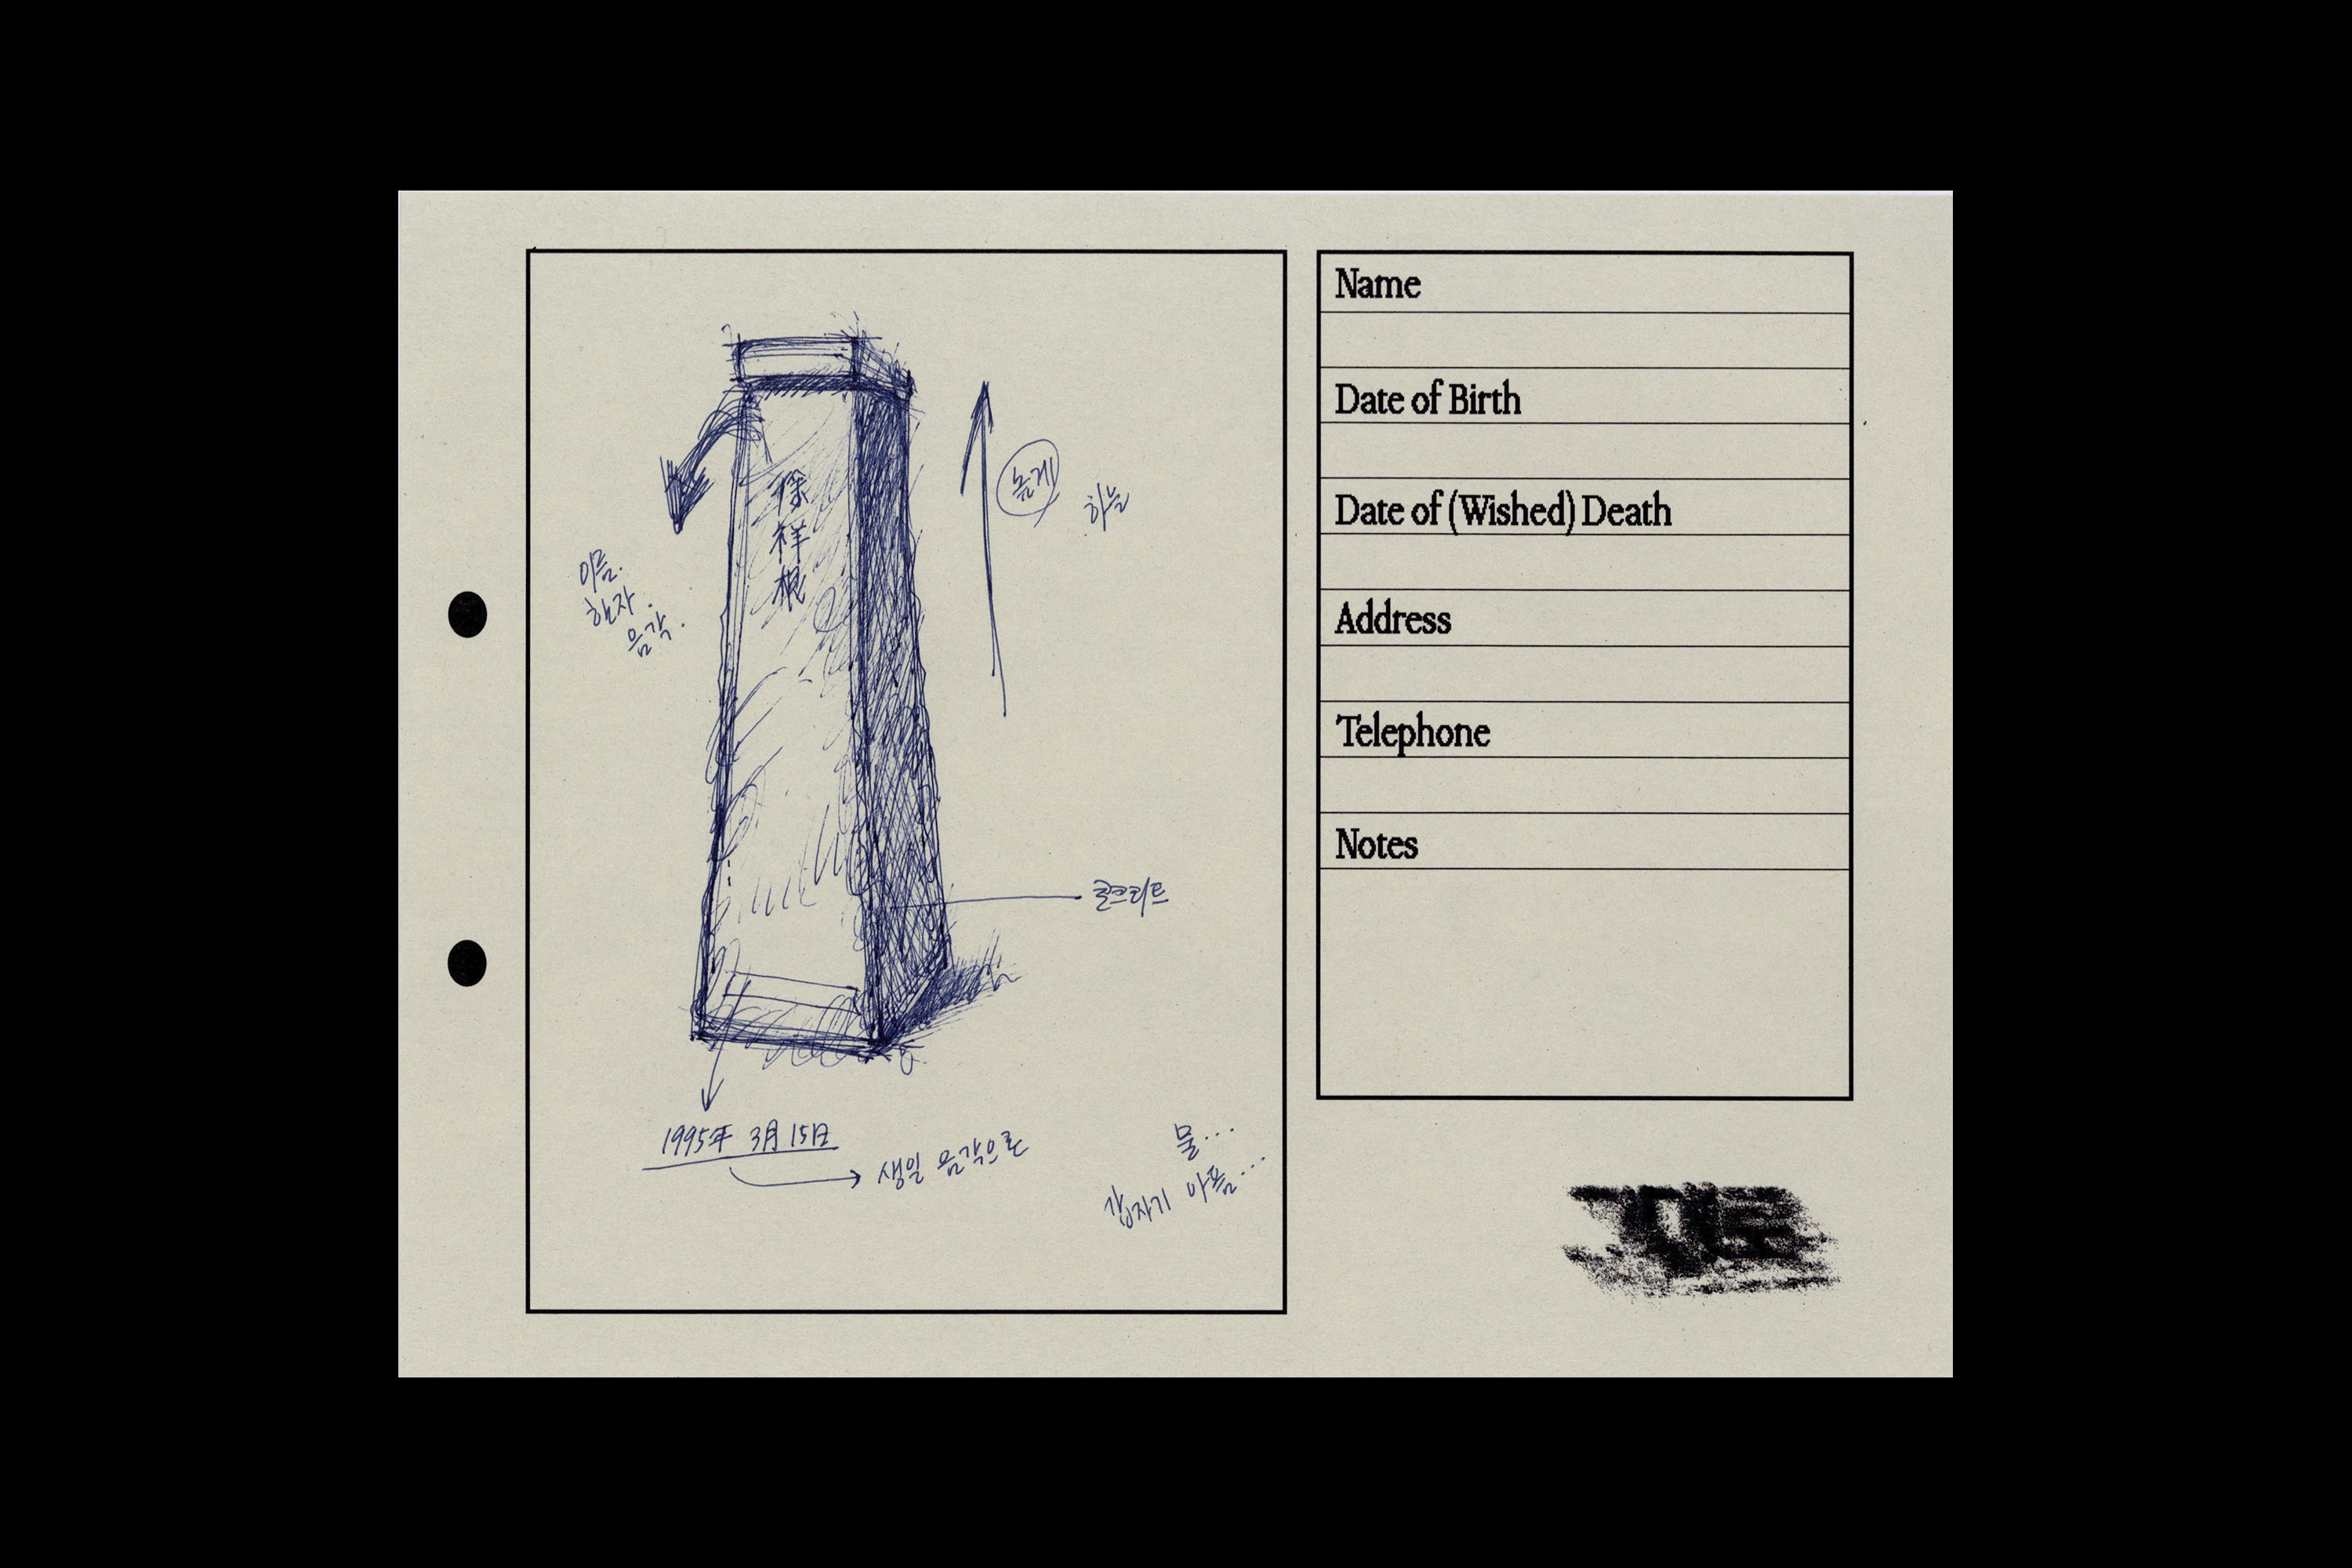 徐
祥
根
이름.
한자.
음각.
높게
하늘
콘크리트
1995年 3月 15日
생일 음각으로
물...
갑자기 아픔...
Name
Date of Birth
Date of (Wished) Death
Address
Telephone
Notes